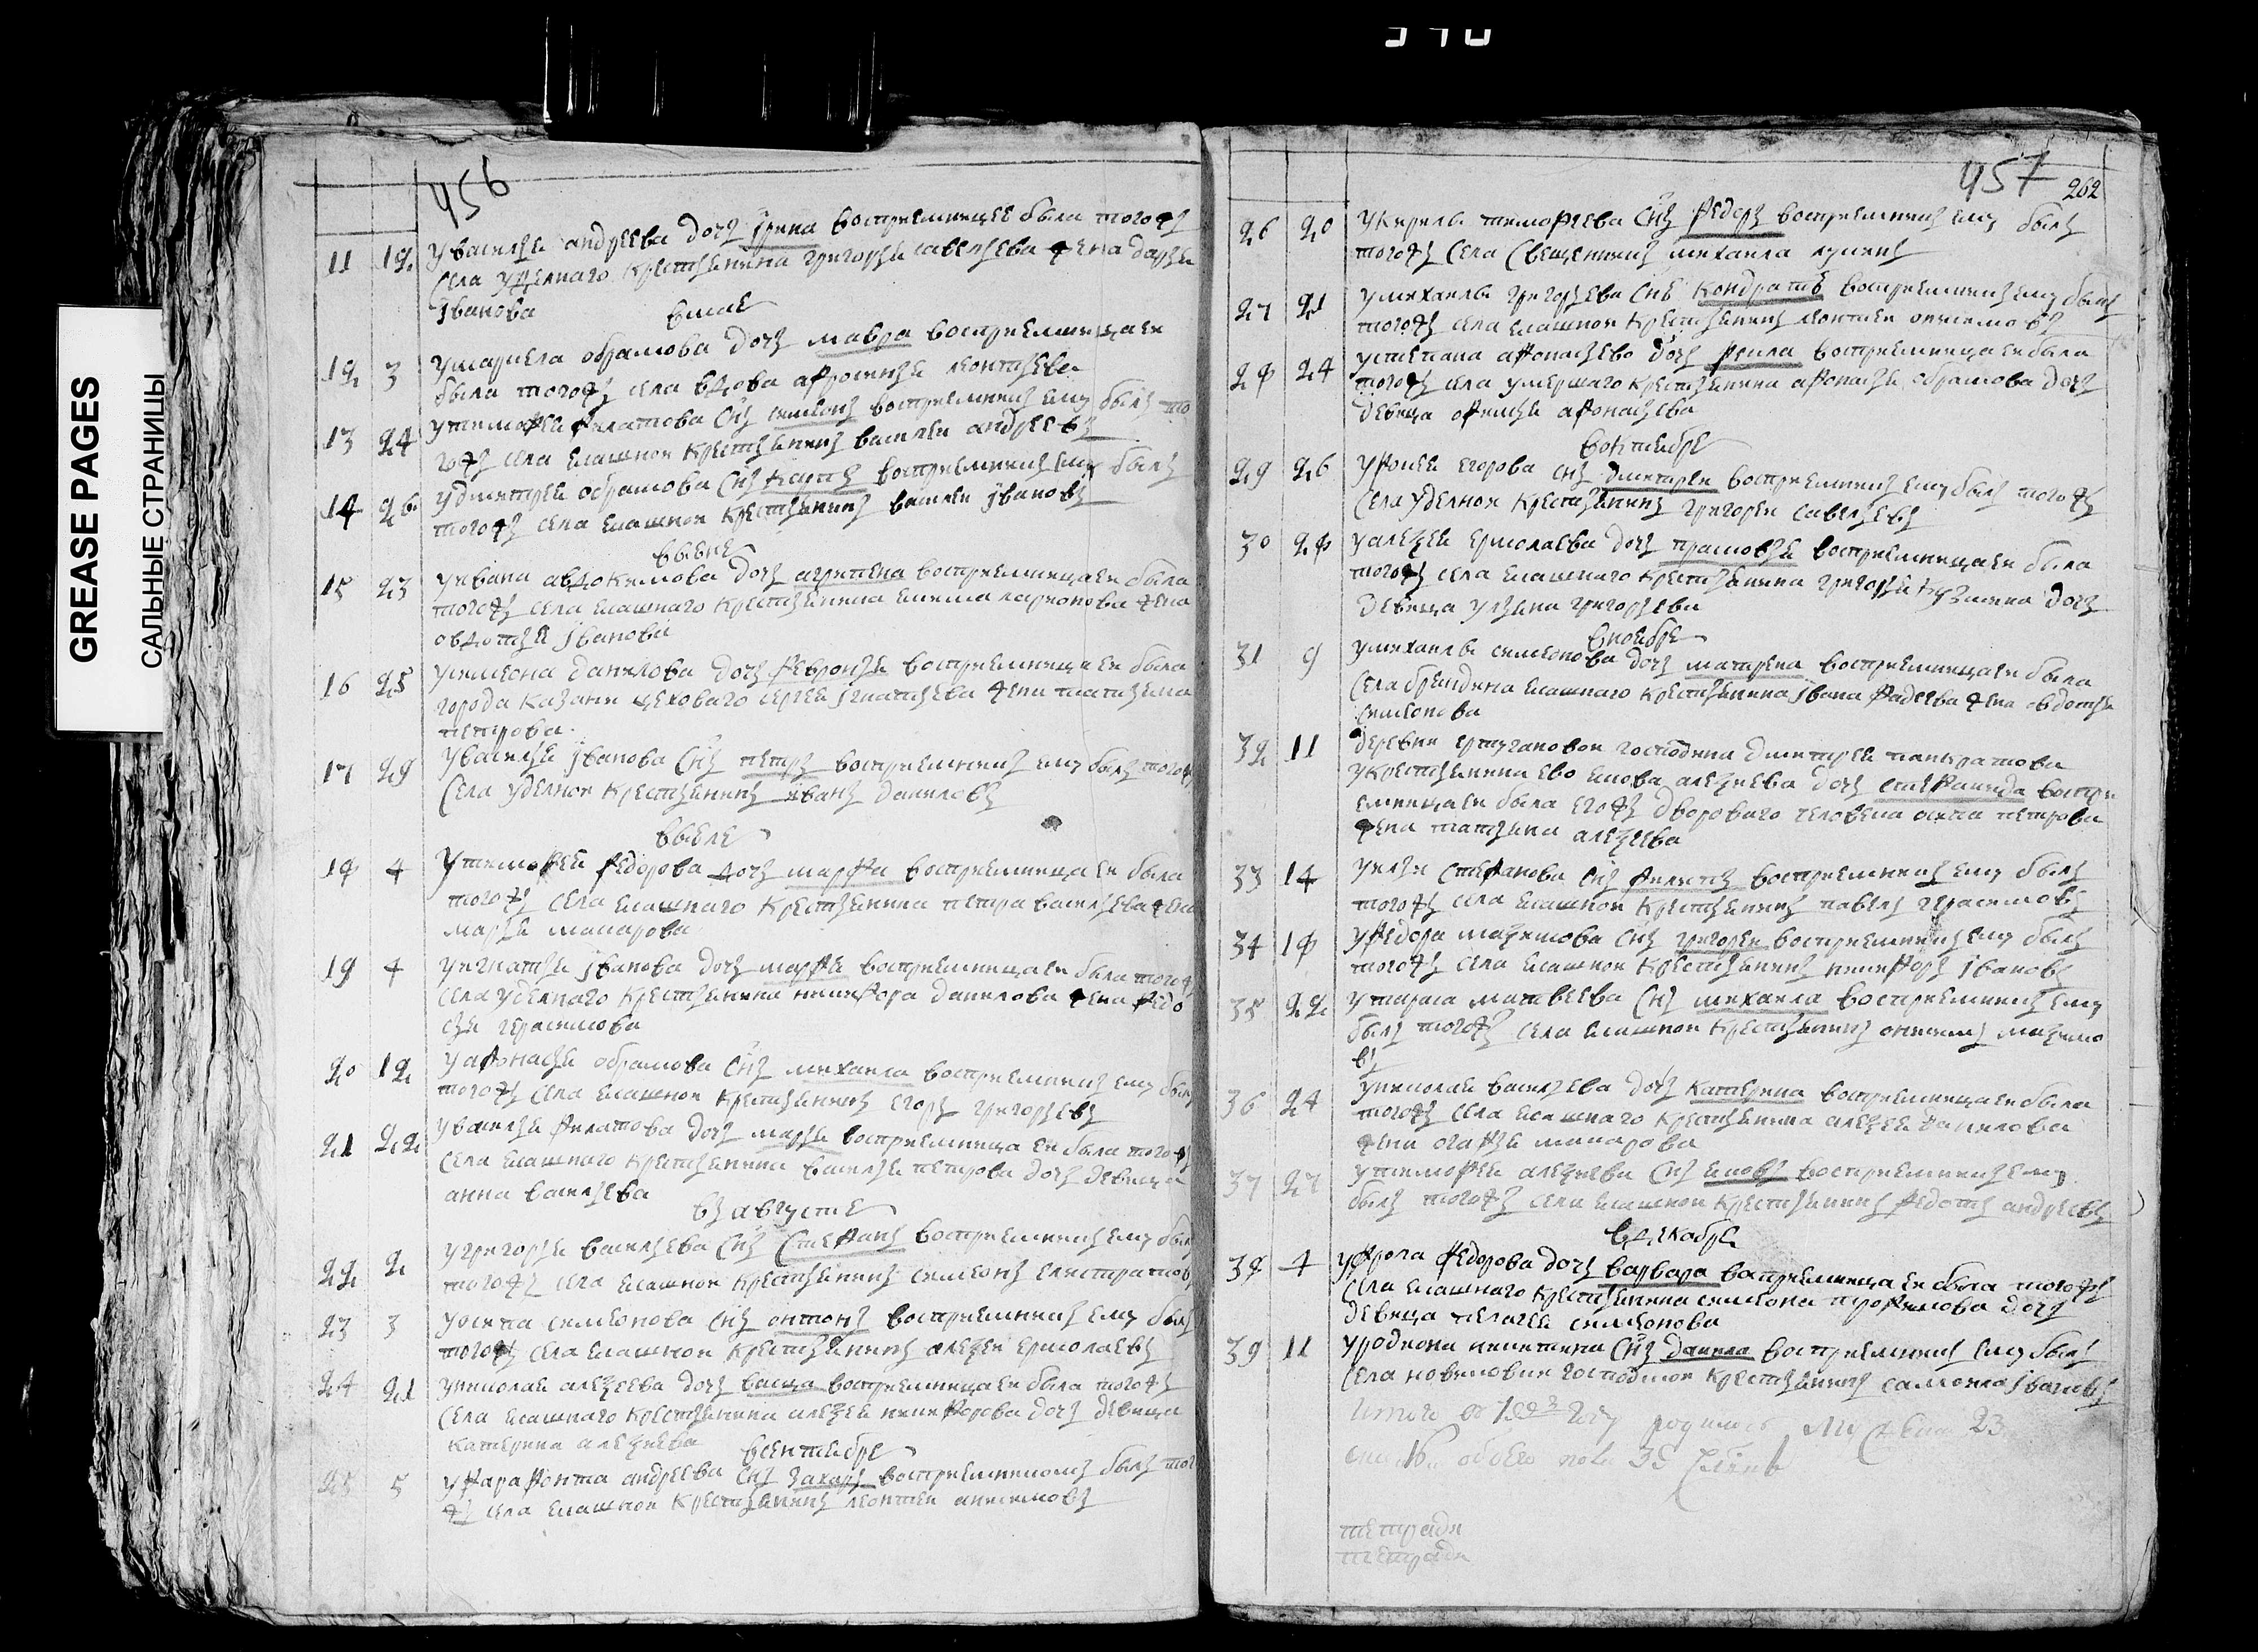 340
GREASE PAGES
САЛЬНЫЕ СТРАНИЦЫ
456
11 12 У василья андреева дочь ірина воспреемницее была тогожъ
села уделнаго крестьянина григорья савельева жена дарья
іванова
в мае
12 3 У обрамова дочь мавра воспреемница еи
была тогожъ села вдова афросинья леонтьева
13 24 У тимофея филатова снъ симионъ воспреемникъ ему былъ то
гожъ села ясашнои крестьянинъ василеи андреевъ
14 26 У дмитрея обрамова снъ карпъ воспреемникъ ему былъ
тогожъ села ясашнои крестьянинъ василеи івановъ
в ыюне
15 23 У ивана авдокимова дочь агрипена воспреемница еи была
тогожъ села ясашнаго крестьянина ларионова жена
овдотья іванова
16 25 У симиона данилова дочь февронья воспреемница еи была
города казани цеховаго сергея игнатьева жена татьяна
петрова
17 29 У василья іванова снъ петръ воспреемникъ ему былъ тогожъ
села уделнои крестьянинъ іванъ даниловъ
в ыюле
18 4 У тимофея федорова дочь марфа воспреемница еи была
тогожъ села ясашнаго крестьянина петра васильева жена
марья макарова
19 4 У игнатья іванова дочь марфа воспреемница еи была тогожъ
села уделнаго крестьянина никифора данилова жена федо
сья герасимова
20 12 У афонасья обрамова снъ михаила воспреемникъ ему былъ
тогожъ села ясашнои крестьянинъ егоръ григорьевъ
21 22 У василья филатова дочь марья воспреемница еи была тогожъ
села ясашнаго крестьянина василья петрова дочь девица
анна васильева
въ августе
22 2 У григорья васильева снъ стефанъ воспреемникъ ему былъ
тогожъ села ясашнои крестьянинъ симионъ елистратовъ
23 3 У осипа симионова снъ онтонъ воспреемникъ ему былъ
тогожъ села ясашнои крестьянинъ алексеи ермолаевъ
24 21 У николая алексеева дочь васца воспреемница еи была тогожъ
села ясашнаго крестьянина алексея никифорова дочь девица
катерина алексеева
в сентябре
25 5 У фарафонта андреева снъ захаръ воспреемникомъ былъ тог
жъ села ясашнои крестьянинъ леонтеи анисимовъ
457
262
26 20 У кирилы тимофеева снъ федоръ воспреемникъ ему былъ
тогожъ села священникъ михаила лукинъ
27 21 У михаилы григорьева снъ кондратеи воспреемникъ ему былъ
тогожъ села ясашнои крестьянинъ леонтеи онисимовъ
28 24 У степана афонасьева дочь феила воспреемница еи была
тогожъ села умершаго крестьянина афонасья обрамова дочь
девица офимья афонасьева
в октябре
29 26 У фокея егорова снъ дмитреи воспреемникъ ему былъ тогожъ
села уделнои крестьянинъ григореи савельевъ
30 28 У алексея ермолаева дочь прасковья воспреемница еи была
тогожъ села ясашнаго крестьянина григорья кузмина дочь
девица ульяна григорьева
в ноябре
31 9 У михаилы симионова дочь матрена воспреемница еи была
села брендина ясашнаго крестьянина івана фадеева жена овдотья
симионова
32 11 деревни ертугановои господина дмитрея панкратова
у крестьянина ево якова алексеева дочь степанида воспре
емница еи была егожъ двороваго человека осипа петрова
жена татьяна алексеева
33 14 У ильи степанова снъ филипъ воспреемникъ ему былъ
тогожъ села ясашнои крестьянинъ павелъ герасимовъ
34 18 У федора максимова снъ григореи воспреемникъ ему былъ
тогожъ села ясашнои крестьянинъ никифоръ івановъ
35 22 У тараса матвеева снъ михаила воспреемникъ ему
былъ тогожъ села ясашнои крестьянинъ онисимъ максимо
въ
36 24 У николая васильева дочь катерина воспреемница еи была
тогожъ села ясашнаго крестьянина алексея данилова
жена огафья макарова
37 27 У тимофея алексеева снъ яковъ воспреемникъ ему
былъ тогожъ села ясашнои крестьянинъ федотъ андреевъ
в декабре
38 4 У фрола федорова дочь варвара вапреемница еи была тогожъ
села ясашнаго крестьянина симиона трофимова дочь
девица пелагея симионова
39 11 У родиона никитина снъ данила воспреемникъ ему былъ
села новиковки господскои крестьянинъ самоила івановъ
итого году родилось 23
16 обоего пола 39
тетради
тетради